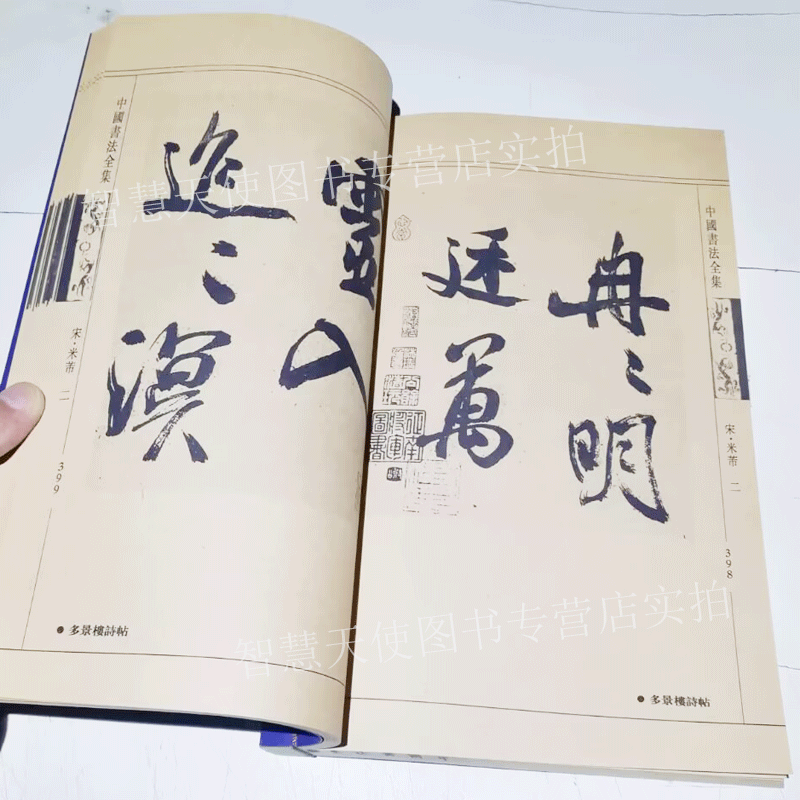 中國書法全集
宋·米芾 二
398
冉〻明
廷萬
多景樓詩帖
靈入
迢〻溟
中國書法全集
宋·米芾 二
399
多景樓詩帖
智慧天使图书专营店实拍
智慧天使图书专营店实拍